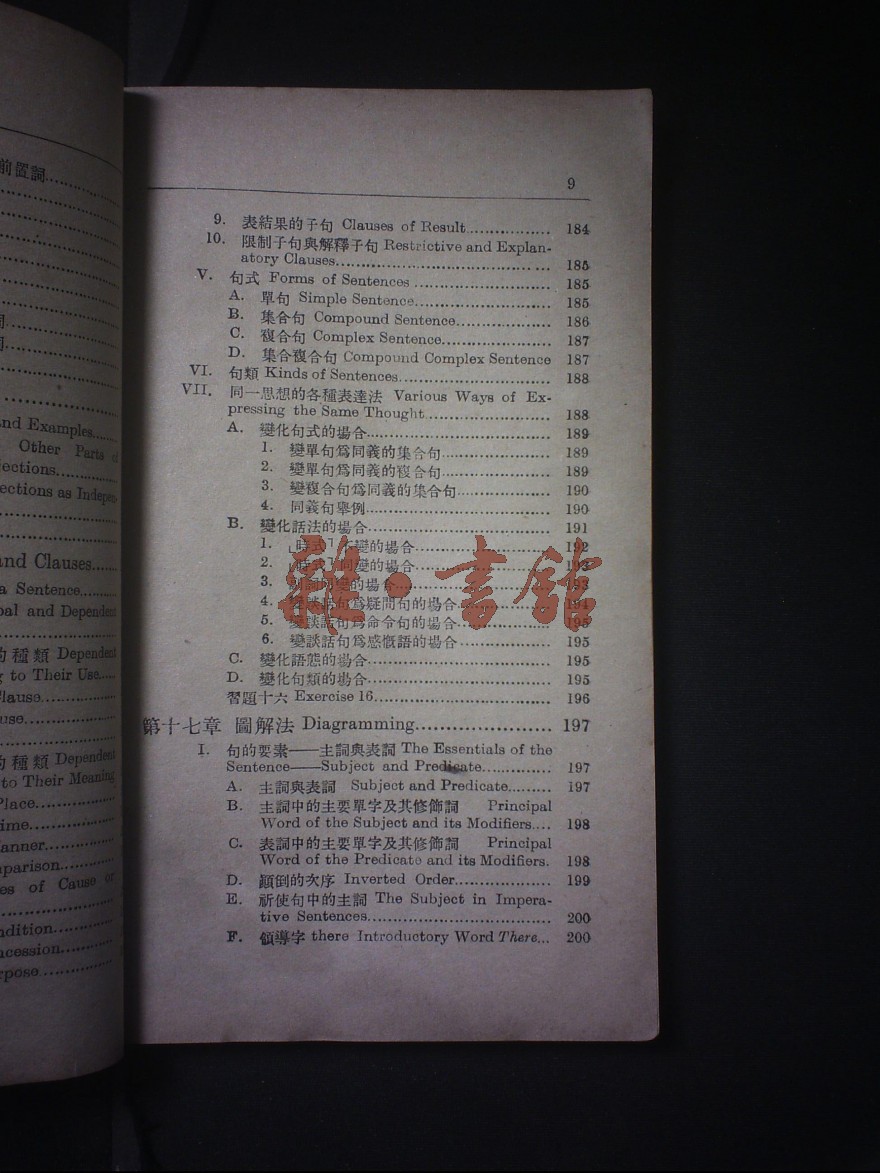 前置詞
nd Examples
Other Parts of
ections
ections as Indepen-
and Clauses
a Sentence
pal and Dependent
的種類 Dependent
g to Their Use
lause
use
的種類 Dependent
to Their Meaning
Place
ime
anner
mparison
es of Cause or
ndition
ncession
rpose
9
9. 表結果的子句 Clauses of Result 184
10. 限制子句與解釋子句 Restrictive and Explan-
atory Clauses 185
V. 句式 Forms of Sentences 185
A. 單句 Simple Sentence 185
B. 集合句 Compound Sentence 186
C. 複合句 Complex Sentence 187
D. 集合複合句 Compound Complex Sentence 187
VI. 句類 Kinds of Sentences 188
VII. 同一思想的各種表達法 Various Ways of Ex-
pressing the Same Thought 188
A. 變化句式的場合 189
1. 變單句爲同義的集合句 189
2. 變單句爲同義的複合句 189
3. 變複合句爲同義的集合句 190
4. 同義句舉例 190
B. 變化話法的場合 191
1. 「時式」不變的場合 192
2. 「時式」變的場合
3. 變的場合 193
4. 變談話句爲疑問句的場合 194
5. 變談話句爲命令句的場合 195
6. 變談話句爲感慨語的場合 195
C. 變化語態的場合 195
D. 變化句類的場合 195
習題十六 Exercise 16 196
第十七章 圖解法 Diagramming 197
I. 句的要素——主詞與表詞 The Essentials of the
Sentence——Subject and Predicate 197
A. 主詞與表詞 Subject and Predicate 197
B. 主詞中的主要單字及其修飾詞 Principal
Word of the Subject and its Modifiers 198
C. 表詞中的主要單字及其修飾詞 Principal
Word of the Predicate and its Modifiers. 198
D. 顚倒的次序 Inverted Order 199
E. 祈使句中的主詞 The Subject in Impera-
tive Sentences 200
F. 領導字 there Introductory Word There 200
雜·書館